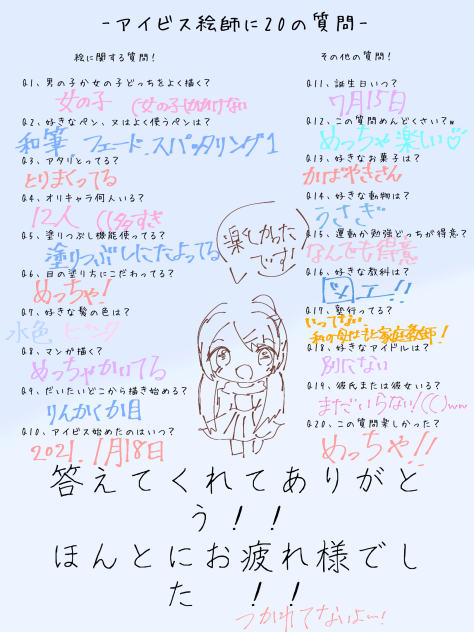 -アイビス絵師に20の質問-
絵に関する質問！
Q1、男の子か女の子どっちをよく描く？
女の子 (女の子しかかけない
Q2、好きなペン、又はよく使うペンは？
和筆 フェード スパッタリング1
Q3、アタリとってる？
とりまくってる
Q4、オリキャラ何人いる？
12人 ((多すぎ
Q5、塗りつぶし機能使ってる？
塗りつぶしにたよってる
Q6、目の塗り方にこだわってる？
めっちゃ！
Q7、好きな髪の色は？
水色 ピンク
Q8、マンガ描く？
めっちゃかいてる
Q9、だいたいどこから描き始める？
りんかくか目
Q10、アイビス始めたのはいつ？
2021.1月18日
その他の質問！
Q11、誕生日いつ？
7月15日
Q12、この質問めんどくさい？w
めっちゃ楽しい♡
Q13、好きなお菓子は？
かばやきさん
Q14、好きな動物は？
うさぎ
Q15、運動か勉強どっちが得意？
なんでも得意
Q16、好きな教科は？
図工!!
Q17、塾行ってる？
いってない
私の母は元家庭教師！
Q18、好きなアイドルは？
別にない
Q19、彼氏または彼女いる？
まだいらない！(()ww
Q20、この質問楽しかった？
めっちゃ!!
楽しかった
です！
答えてくれてありがと
う！！
ほんとにお疲れ様でし
た ！！
つかれてないよー！